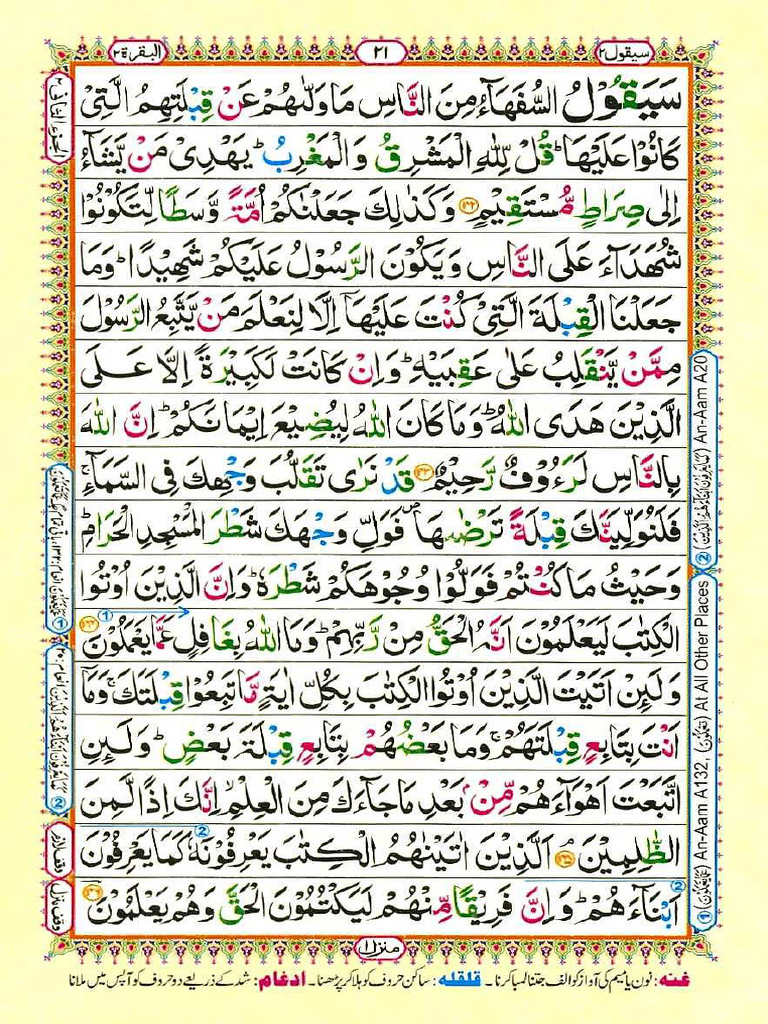 سيقول ٢
٢١
البقرة ٢
سَيَقُوْلُ السُّفَهَآءُ مِنَ النَّاسِ مَا وَلّٰىهُمْ عَنْ قِبْلَتِهِمُ الَّتِیْ
كَانُوْا عَلَیْهَا ؕ قُلْ لِّلّٰهِ الْمَشْرِقُ وَ الْمَغْرِبُ ؕ یَهْدِیْ مَنْ یَّشَآءُ
اِلٰی صِرَاطٍ مُّسْتَقِیْمٍ ﴿۱۴۲﴾ وَ كَذٰلِكَ جَعَلْنٰكُمْ اُمَّةً وَّسَطًا لِّتَكُوْنُوْا
شُهَدَآءَ عَلَی النَّاسِ وَ یَكُوْنَ الرَّسُوْلُ عَلَیْكُمْ شَهِیْدًا ؕ وَ مَا
جَعَلْنَا الْقِبْلَةَ الَّتِیْ كُنْتَ عَلَیْهَاۤ اِلَّا لِنَعْلَمَ مَنْ یَّتَّبِعُ الرَّسُوْلَ
مِمَّنْ یَّنْقَلِبُ عَلٰی عَقِبَیْهِ ؕ وَ اِنْ كَانَتْ لَكَبِیْرَةً اِلَّا عَلَی
الَّذِیْنَ هَدَی اللّٰهُ ؕ وَ مَا كَانَ اللّٰهُ لِیُضِیْعَ اِیْمَانَكُمْ ؕ اِنَّ اللّٰهَ
بِالنَّاسِ لَرَءُوْفٌ رَّحِیْمٌ ﴿۱۴۳﴾ قَدْ نَرٰی تَقَلُّبَ وَجْهِكَ فِی السَّمَآءِ ۚ
فَلَنُوَلِّیَنَّكَ قِبْلَةً تَرْضٰىهَا ۪ فَوَلِّ وَجْهَكَ شَطْرَ الْمَسْجِدِ الْحَرَامِ ؕ
وَ حَیْثُ مَا كُنْتُمْ فَوَلُّوْا وُجُوْهَكُمْ شَطْرَهٗ ؕ وَ اِنَّ الَّذِیْنَ اُوْتُوا
الْكِتٰبَ لَیَعْلَمُوْنَ اَنَّهُ الْحَقُّ مِنْ رَّبِّهِمْ ؕ وَ مَا اللّٰهُ بِغَافِلٍ عَمَّا یَعْمَلُوْنَ ﴿۱۴۴﴾
وَ لَئِنْ اَتَیْتَ الَّذِیْنَ اُوْتُوا الْكِتٰبَ بِكُلِّ اٰیَةٍ مَّا تَبِعُوْا قِبْلَتَكَ ۚ وَ مَاۤ
اَنْتَ بِتَابِعٍ قِبْلَتَهُمْ ۚ وَ مَا بَعْضُهُمْ بِتَابِعٍ قِبْلَةَ بَعْضٍ ؕ وَ لَئِنِ
اتَّبَعْتَ اَهْوَآءَهُمْ مِّنْۢ بَعْدِ مَا جَآءَكَ مِنَ الْعِلْمِ ۙ اِنَّكَ اِذًا لَّمِنَ
الظّٰلِمِیْنَ ﴿۱۴۵﴾ اَلَّذِیْنَ اٰتَیْنٰهُمُ الْكِتٰبَ یَعْرِفُوْنَهٗ كَمَا یَعْرِفُوْنَ
اَبْنَآءَهُمْ ؕ وَ اِنَّ فَرِیْقًا مِّنْهُمْ لَیَكْتُمُوْنَ الْحَقَّ وَ هُمْ یَعْلَمُوْنَ ﴿۱۴۶﴾
منزل ۱
غنه : نون یا میم کی آواز کو الف جتنا لمبا کرنا ۔ قلقله : ساکن حروف کو ہلا کر پڑھنا ۔ ادغام : شد کے ذریعے دو حروف کو آپس میں ملانا
An-Aam A20
An-Aam A132, At All Other Places
وقف لازم
وقف منزل